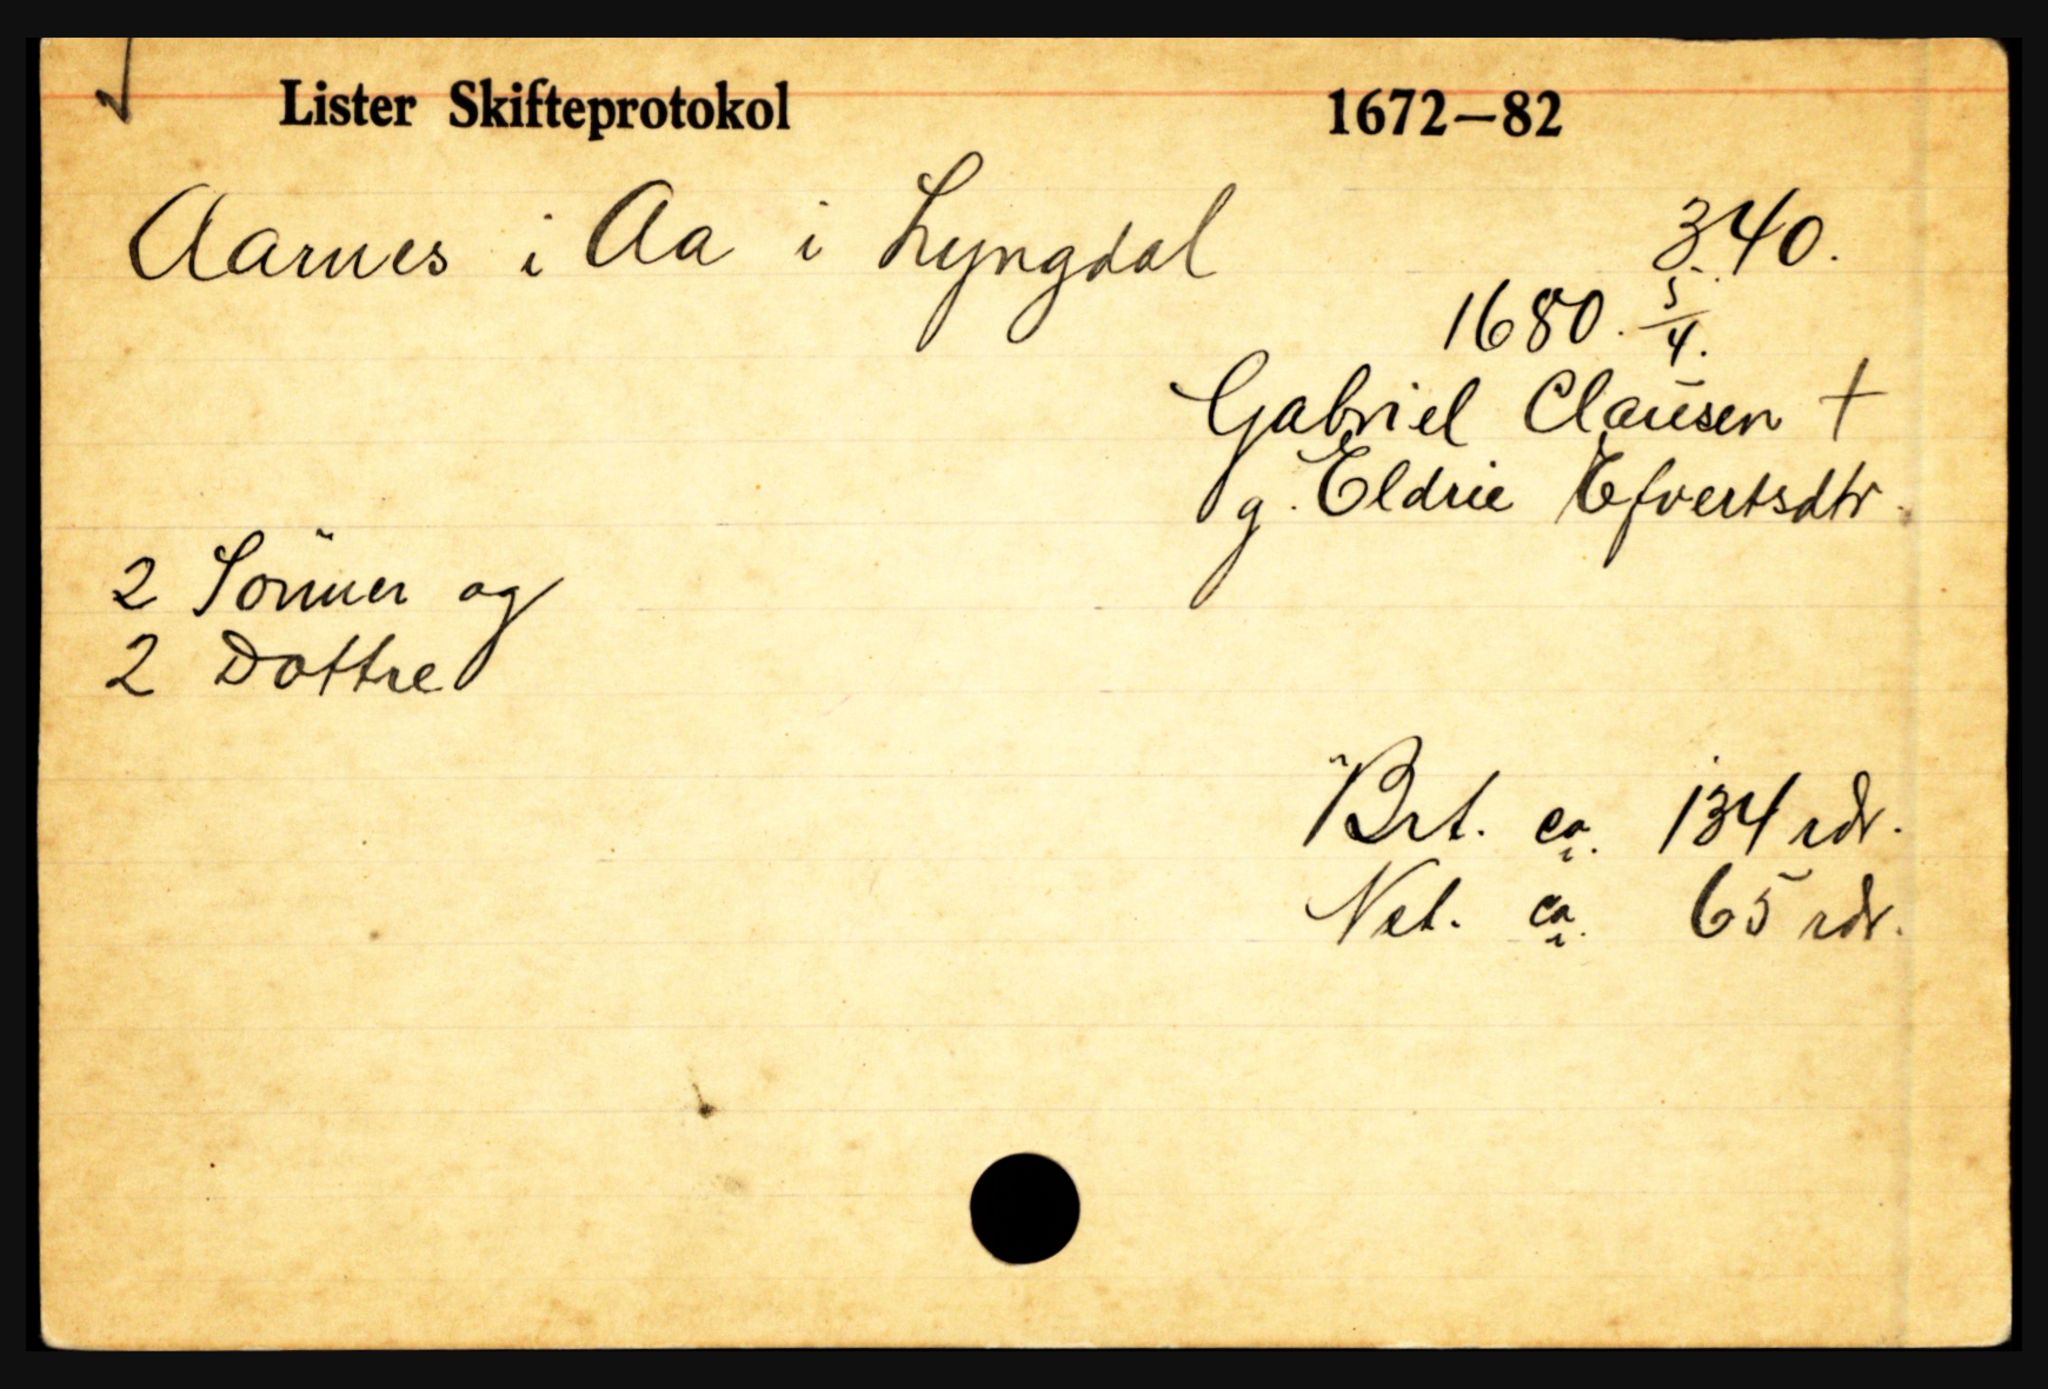 Lister Skifteprotokol 1672–82
Aarnes i Aa i Lyngdal 340.
1680. 5/4.
Gabriel Clausen +
g. Eldrie Efvertsdtr
2 Sönner og
2 Dottre
Brt. ca. 134 rdr.
Net. ca. 65 rdr.